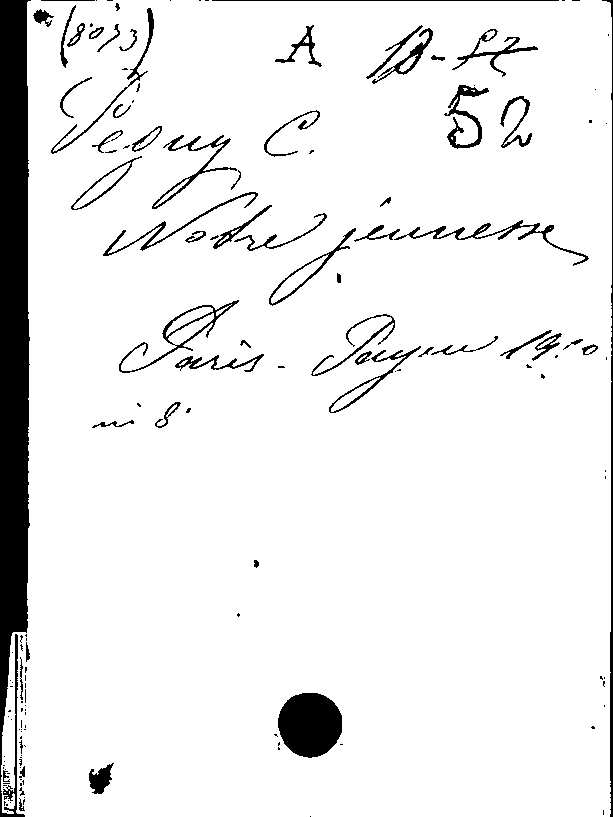 (8073) A B-57
52
Péguy C.
Notre jeunesse
Paris - Payen 1910
in 8°